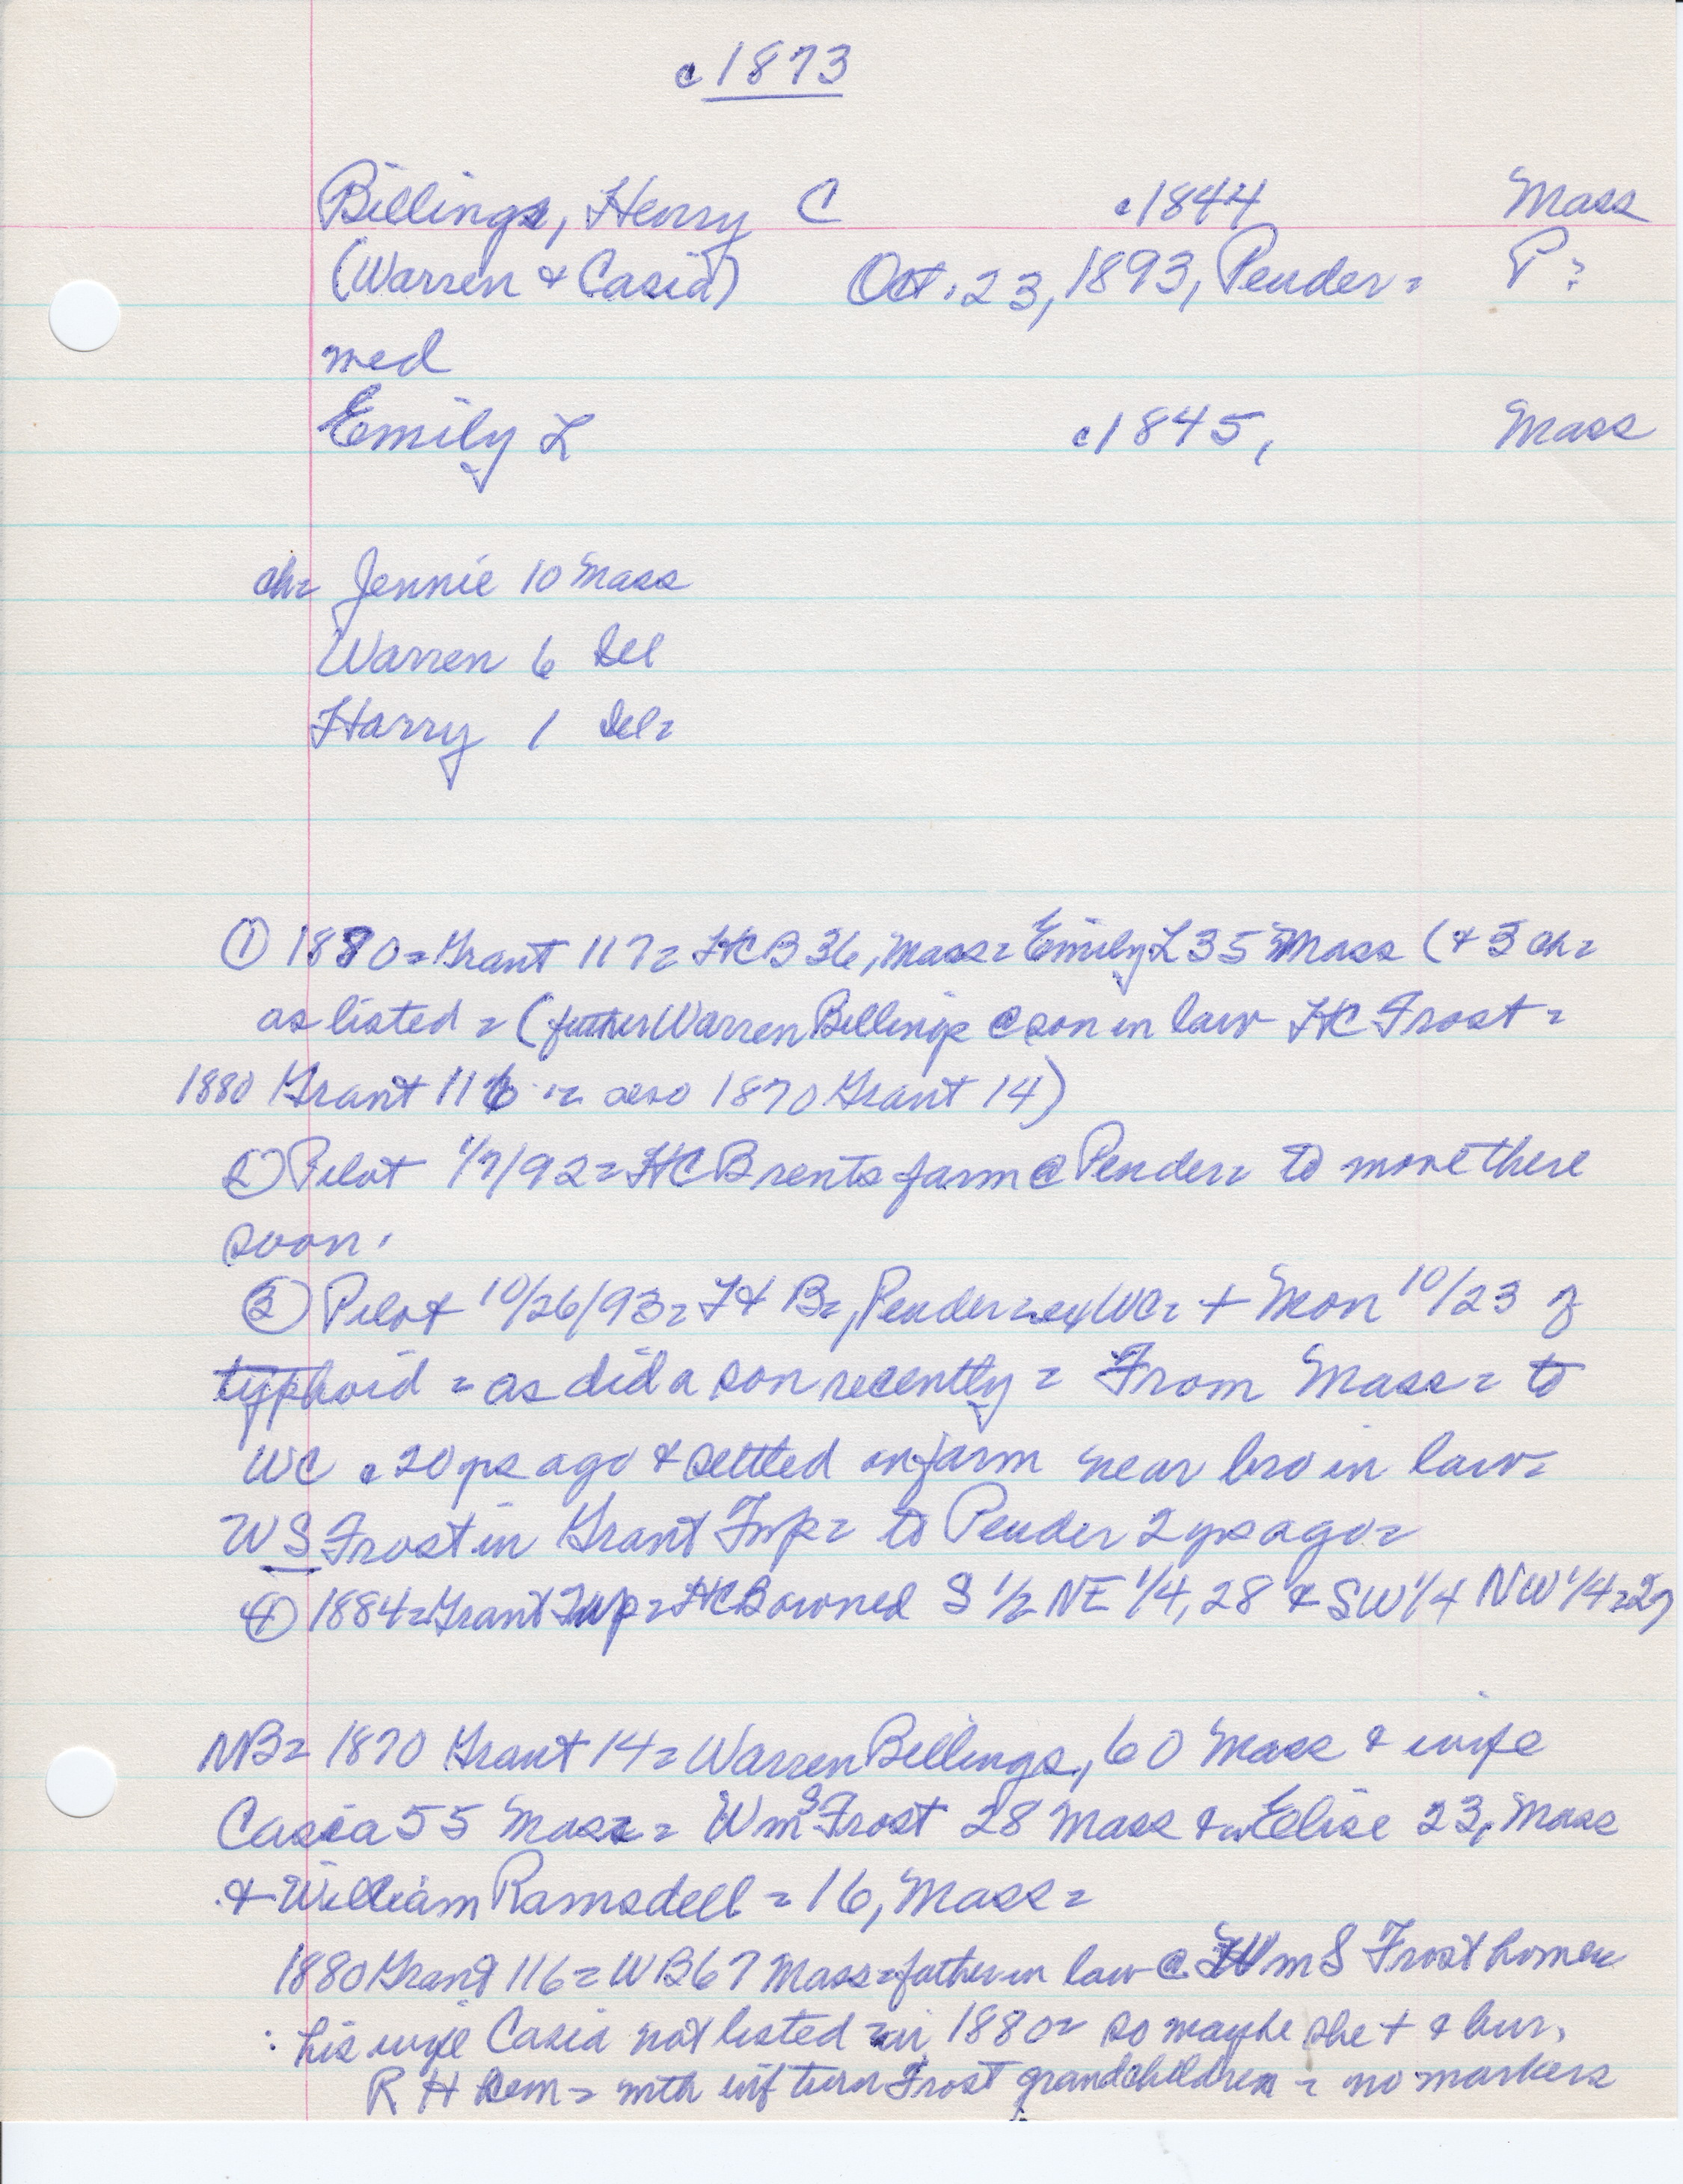 c1873
Billings, Henry C c1844 Mass
(Warren & Casia) Oct. 23, 1893, Pender = P?
med
Emily L c1845, Mass
ch= Jennie 10 Mass
Warren 6 Del
Harry 1 Del=
① 1880=Grant 117= HCB 36, Mass= Emily L 35 Mass (& 3 ch=
as listed = (father Warren Billings @ son in law HC Frost =
1880 Grant 116 = also 1870 Grant 14)
② Pilot 1/7/92= HCB rents farm @ Pender= to move there
soon.
③ Pilot 10/26/93= H B=, Pender= ex WC= + Mon 10/23 of
typhoid = as did a son recently = From Mass = to
WC c20 yrs ago & settled on farm near bro in law=
WS Frost in Grant Twp= to Pender 2 yrs ago=
④ 1884=Grant Twp=HCB owned S 1/2 NE 1/4, 28 & SW 1/4 NW 1/4=27
NB= 1870 Grant 14= Warren Billings, 60 Mass & wife
Casia 55 Mass= Wm S Frost 28 Mass & w Elise 23, Mass
& William Ramsdell = 16, Mass=
1880 Grant 116= WB 67 Mass=father in law @ Wm S Frost home=
: his wife Casia not listed in 1880= so maybe she + & bur.
R H Cem= with Frost grandchildren = no markers